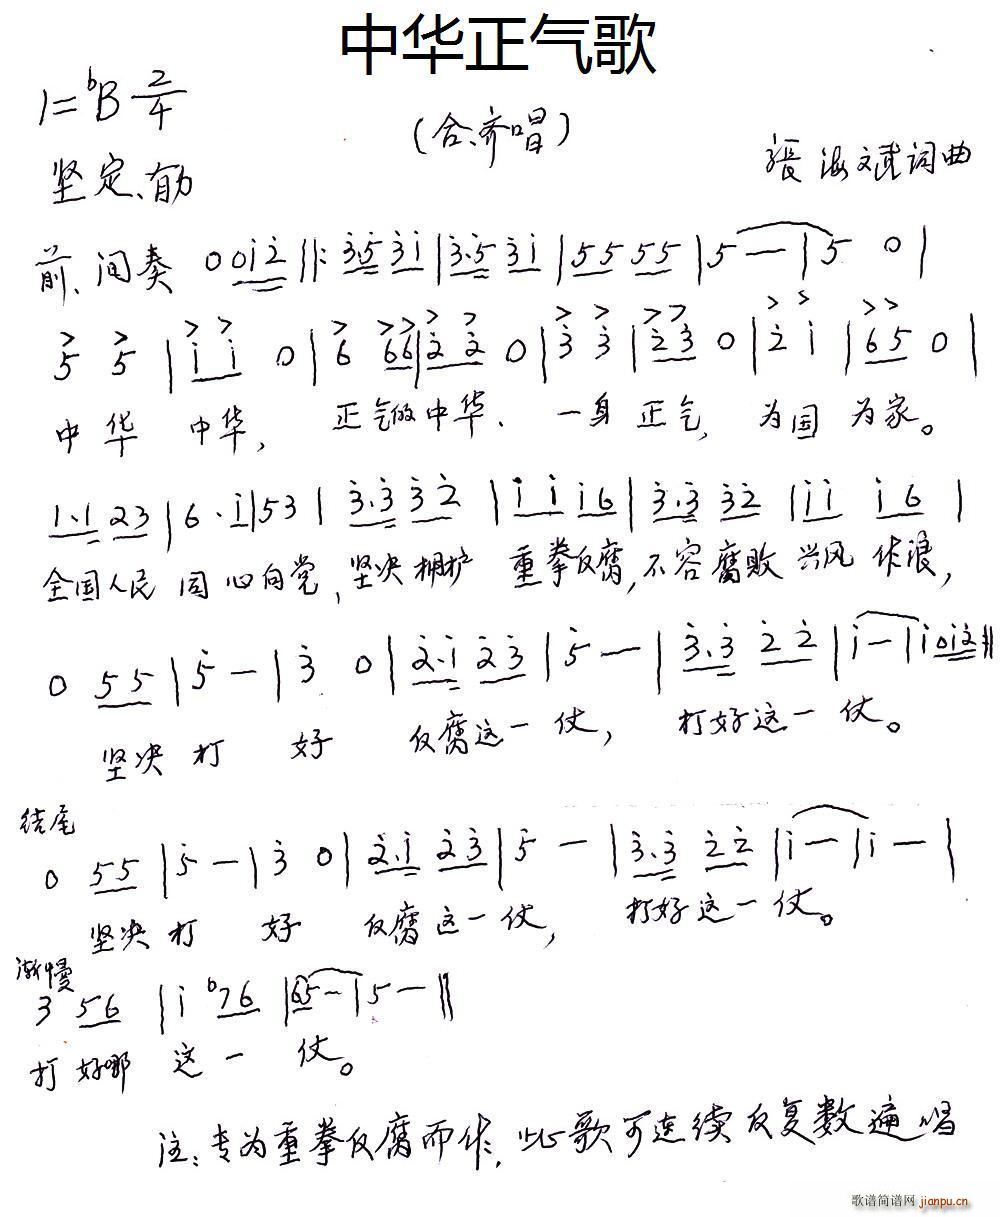 中华正气歌
1=♭B 2/4
(合、齐唱)
坚定、有力
張海斌词曲
前、间奏 0 0i̇2̇ ‖: 3̇·5̇ 3̇i̇ | 3̇·5̇ 3̇i̇ | 55 55 | 5 — | 5 0 |
5 5 | i i 0 | 6 66 | 2̇ 2̇ 0 | 3̇ 3̇ | 2̇3̇ 0 | 2̇ i | 65 0 |
中华 中华, 正气的中华、 一身正气, 为国为家。
1·1 23 | 6·i | 53 | 3̇·3̇ 3̇2̇ | i i i6 | 3̇·3̇ 3̇2̇ | ii i6 |
全国人民同心向党, 坚决拥护 重拳反腐,不容腐败兴风作浪,
0 55 | 5̇ — | 3̇ 0 | 2̇·i 2̇3̇ | 5̇ — | 3̇·3̇ 2̇2̇ | i — | i 0i2̇ ‖
坚决打好 反腐这一仗, 打好这一仗。
结尾
0 55 | 5̇ — | 3̇ 0 | 2̇·i 2̇3̇ | 5̇ — | 3̇·3̇ 2̇2̇ | i — | i — |
坚决打好 反腐这一仗, 打好这一仗。
渐慢
3 56 | i ♭76 | 65 — | 5 — ‖
打好哪这一仗。
注:专为重拳反腐而作,此歌可连续反复数遍唱
歌谱简谱网 jianpu.cn